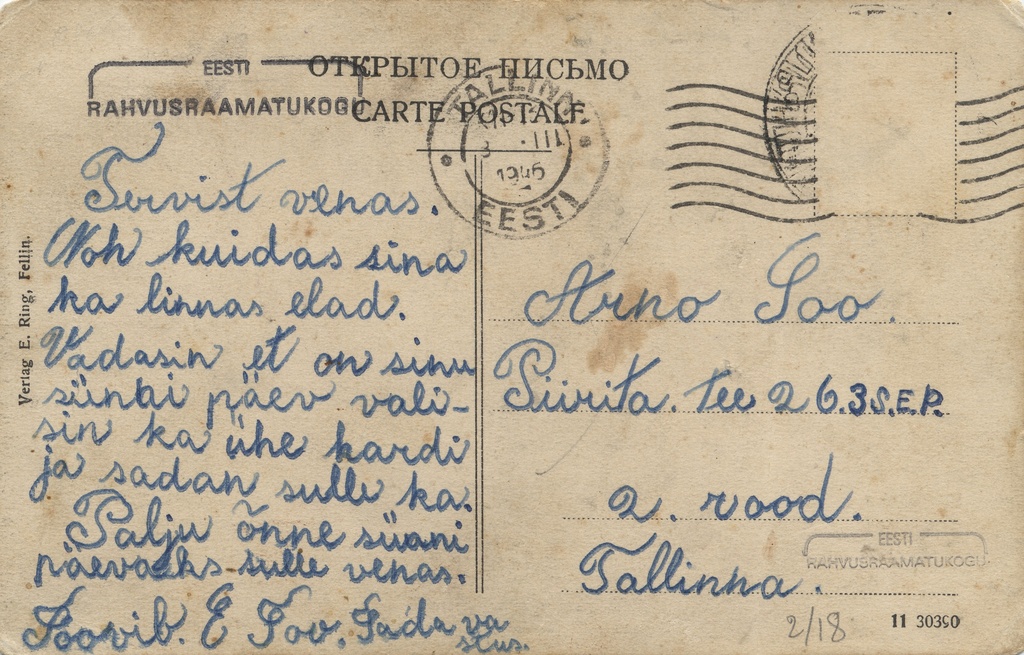 EESTI
RAHVUSRAAMATUKOGU
ОТКРЫТОЕ ПИСЬМО
CARTE POSTALE
TALLINN
III
1946
EESTI
Tervist venas.
Noh kuidas sina
ka linnas elad.
Vadasin et on sinu
sünni päev vali-
sin ka ühe kardi
ja sadan sulle ka.
Palju õnne süani
päevaks sulle venas.
Soovib. E Soo. Sada va
stus.
Verlag E. Ring, Fellin.
Arno Soo.
Piirita. tee 26. 3 S.E.P.
2. rood.
Tallinna.
EESTI
RAHVUSRAAMATUKOGU
2/18
11 30390